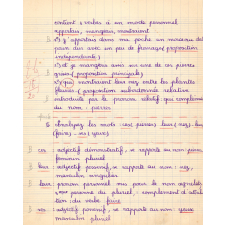 contient 3 verbes à un mode personnel
apportais, mangerais, montraient
1°) J'apportais dans ma poche un morceau de
pain dur avec un peu de fromage (proposition
indépendante)
2°) et je mangerais assis sur une de ces pierres
grises (proposition principale)
3°) qui montraient leur nez entre les plantes
fleuries (proposition subordonnée relative
introduite par le pronom relatif qui complément
du nom pierres
Analysez les mots : ces (pierres) leur (nez), leur
(faire), ses (yeux)
ces : adjectif démonstratif, se rapporte au nom pierres,
féminin pluriel
leur : adjectif possessif, se rapporte au nom : nez,
masculin singulier
leur : pronom personnel mis pour le nom
personne du pluriel, complément d'attribution
du verbe faire
ses : adjectif possessif, se rapporte au nom : yeux
masculin pluriel